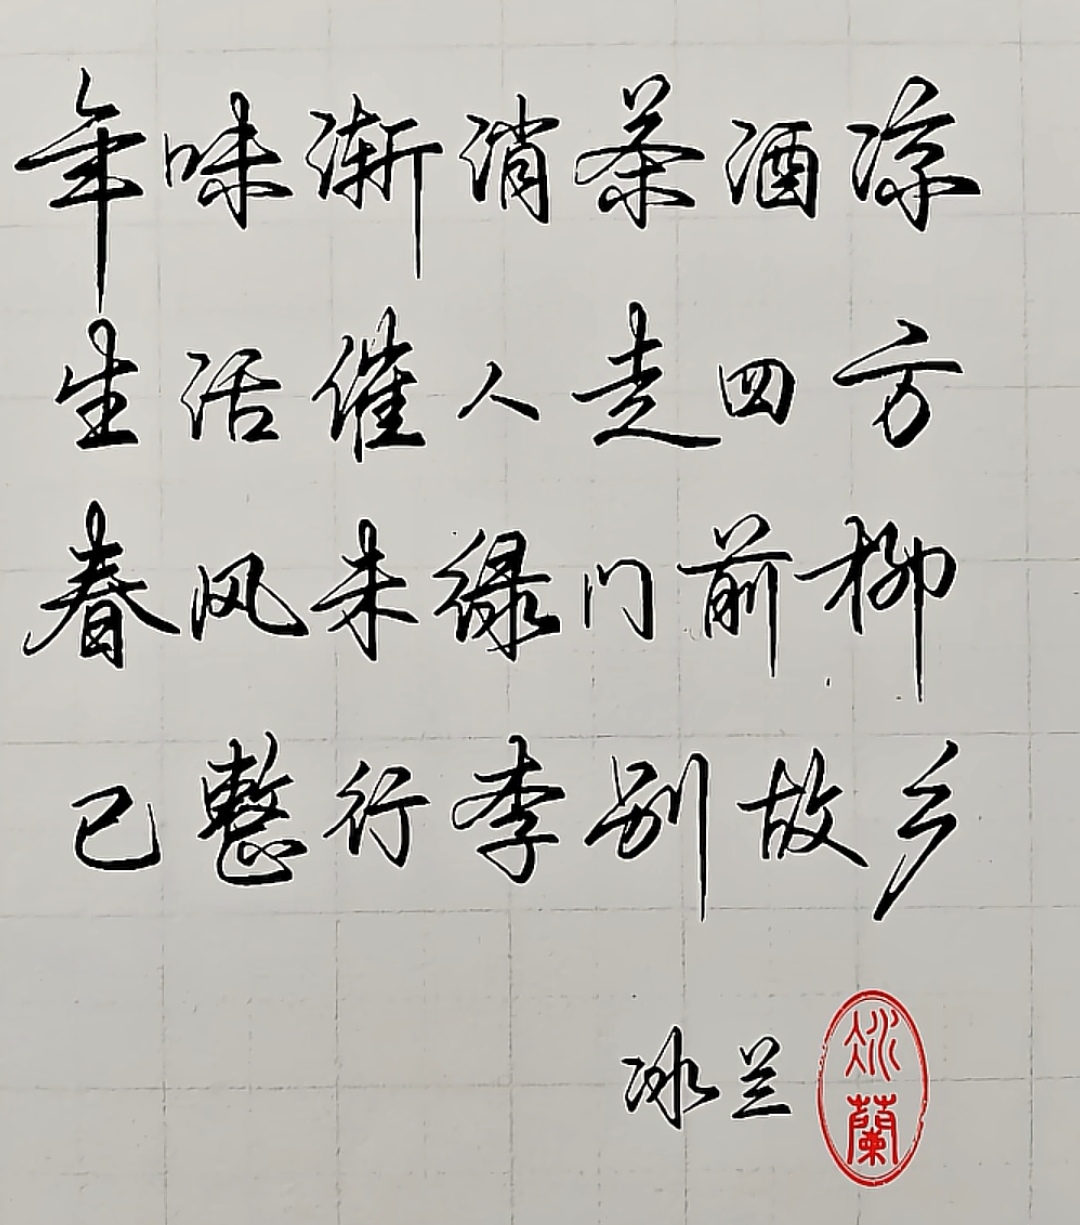 年味渐消茶酒凉
生活催人走四方
春风未绿门前柳
已整行李别故乡
冰兰
冰蘭